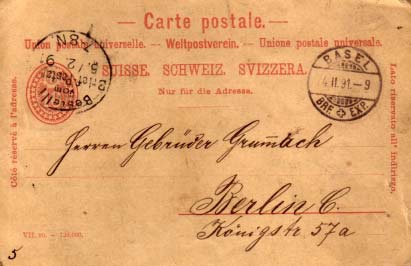 — Carte postale. —
Union postale universelle. — Weltpostverein. — Unione postale universale.
SUISSE. SCHWEIZ. SVIZZERA.
Nur für die Adresse.
Côté réservé à l'adresse.
Lato riservato all' indirizzo.
Bestellt
vom
Postamte
BASEL
4.II.91.-9
BRF. EXP.
Herren Gebrüder Grumach
Berlin C.
Königstr 57a
VII. 90. — 150,000.
5